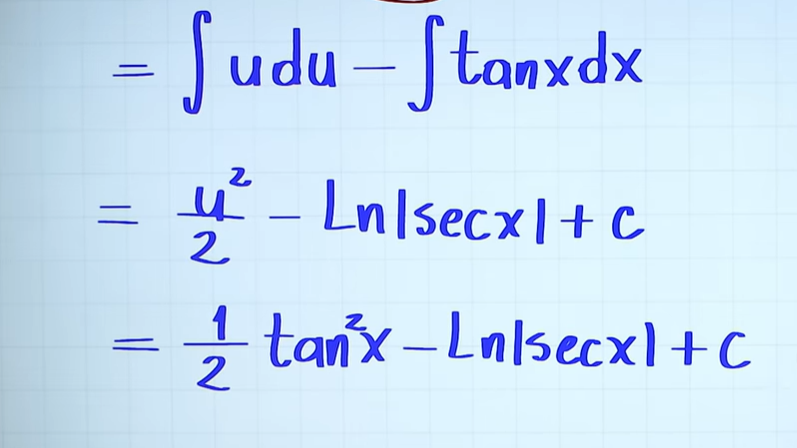 = ∫ u du − ∫ tanx dx
= u²/2 − Ln|secx| + c
= 1/2 tan²x − Ln|secx| + c